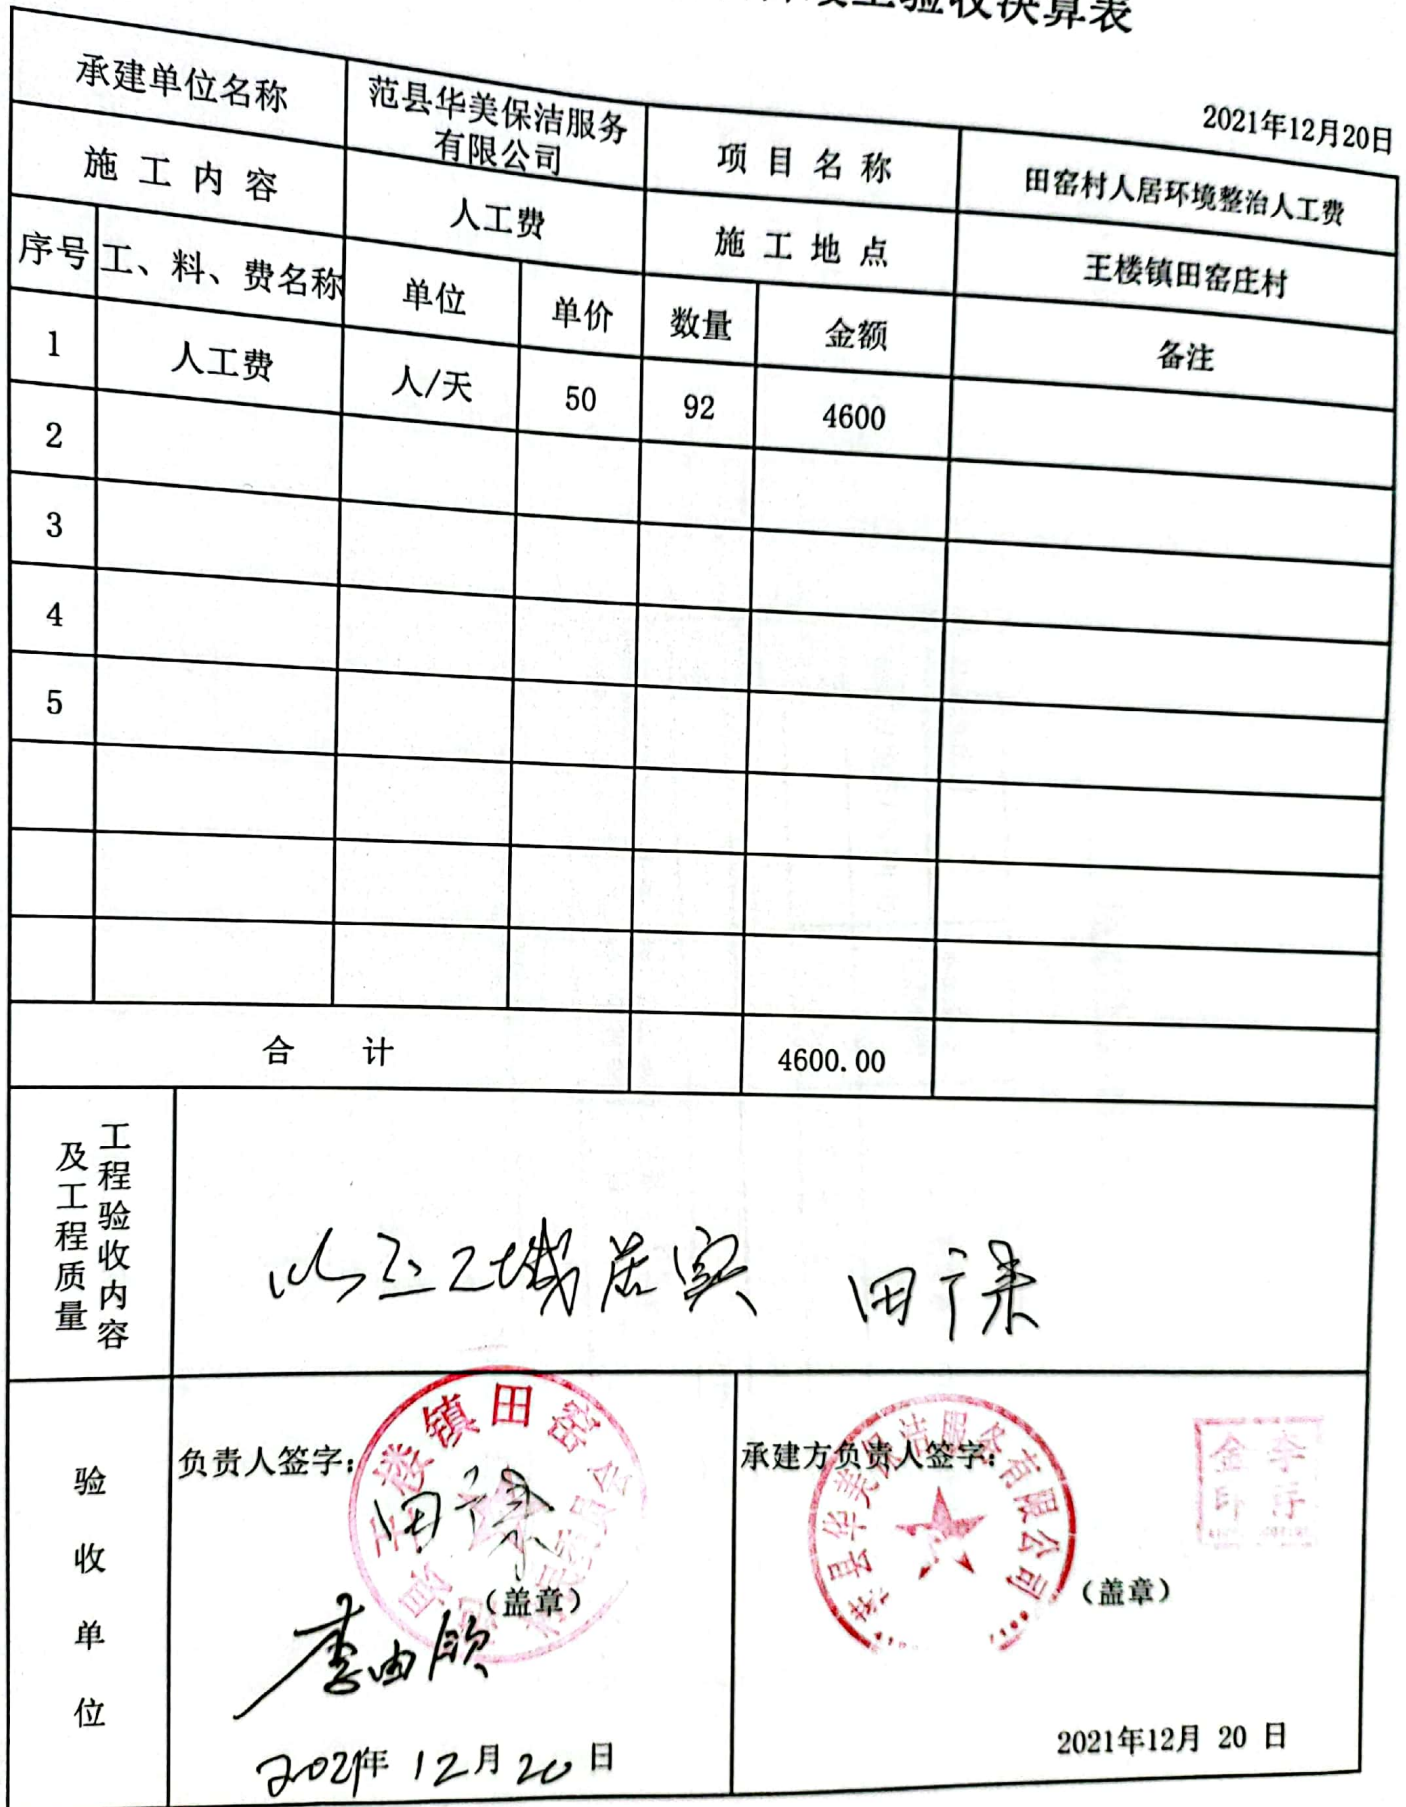 验收决算表
2021年12月20日
承建单位名称 范县华美保洁服务有限公司 项目名称 田窑村人居环境整治人工费
施工内容 人工费 施工地点 王楼镇田窑庄村
序号 工、料、费名称 单位 单价 数量 金额 备注
1 人工费 人/天 50 92 4600
2
3
4
5
合计 4600.00
工程验收内容及工程质量
田
负责人签字:
王楼镇田窑
田
(盖章)
李
2021年12月20日
验收单位
承建方负责人签字:
县华美保洁服务有限公司
李
金印
(盖章)
2021年12月 20 日